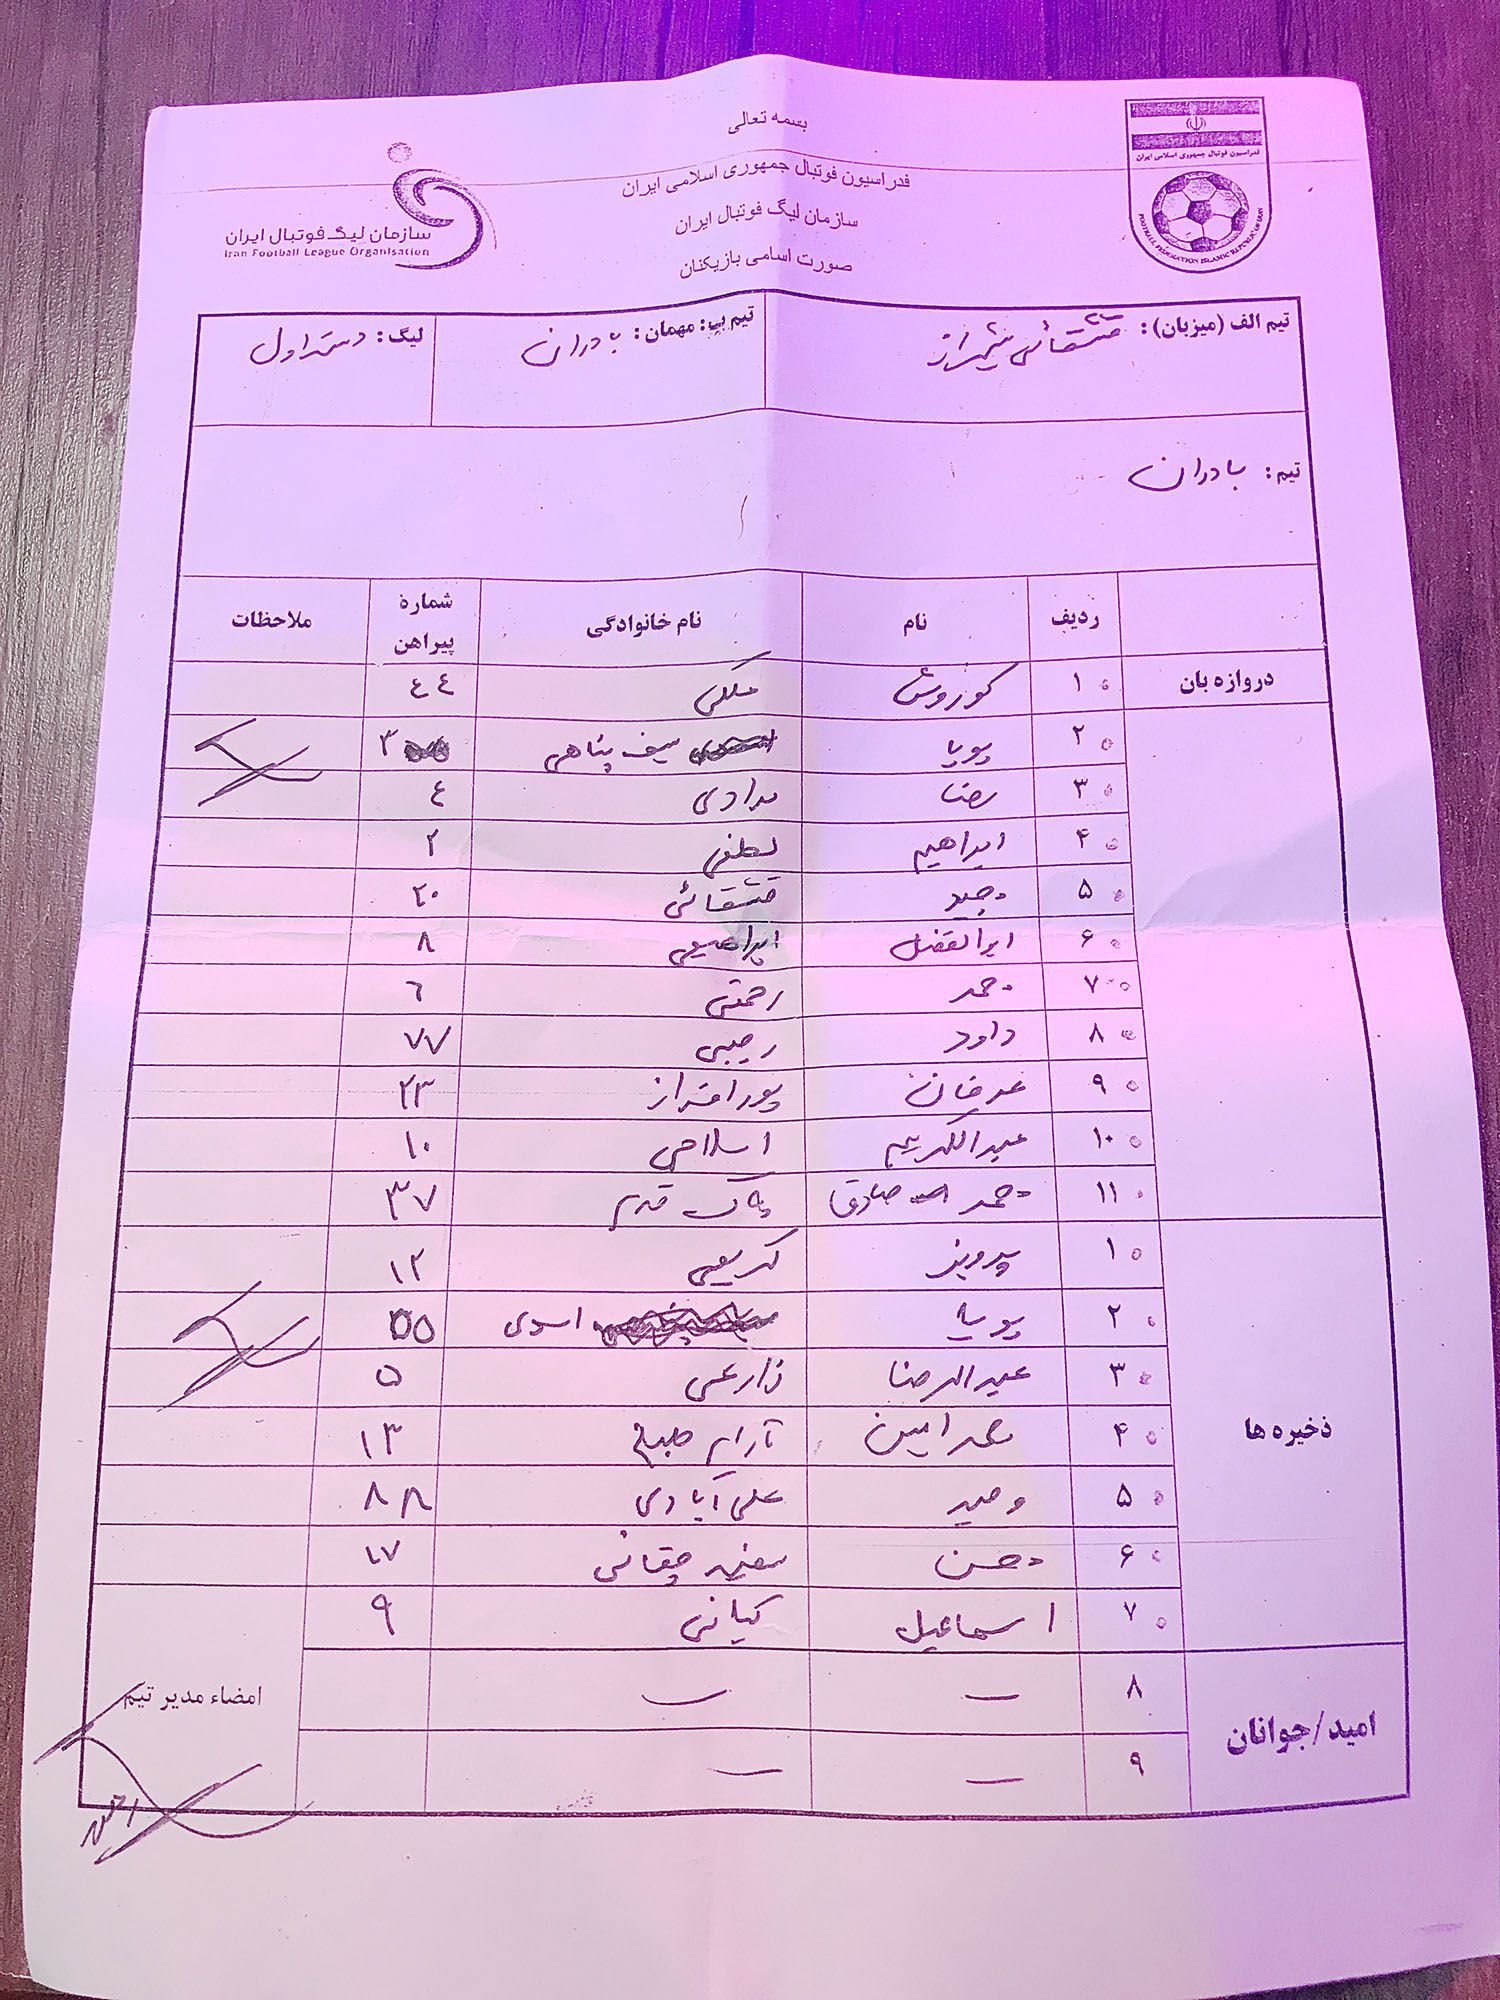 بسمه تعالی
فدراسیون فوتبال جمهوری اسلامی ایران
سازمان لیگ فوتبال ایران
صورت اسامی بازیکنان
فدراسیون فوتبال جمهوری اسلامی ایران
FOOTBALL FEDERATION ISLAMIC REPUBLIC OF IRAN
سازمان لیگ فوتبال ایران
Iran Football League Organisation
تیم الف (میزبان): قشقائی شیراز تیم ب: مهمان: بادران لیگ: دسته اول
تیم: بادران
ردیف نام نام خانوادگی شماره پیراهن ملاحظات
دروازه بان ۱ کوروش ملکی ٤٤
۲ پویا سیف پناهی ۳
۳ رضا مرادی ٤
۴ ابراهیم لطفی ۲
۵ مجید قشقائی ۲۰
۶ ابوالفضل ابراهیمی ۸
۷ محمد رحمتی ٦
۸ داود رجبی ۷۷
۹ عرفان پورافراز ۲۳
۱۰ عبدالکریم اسلامی ۱۰
۱۱ محمد صادق پاک قدم ۳۷
ذخیره ها
۱ پرویز کریمی ۱۲
۲ پویا اسدی ۵۵
۳ عبدالرضا زارعی ۵
۴ محمد امین آرام طبع ۱۳
۵ وحید علی آبادی ۸۸
۶ محسن ۱۷
۷ اسماعیل کیانی ۹
امید/جوانان
۸ — —
۹ — —
امضاء مدیر تیم